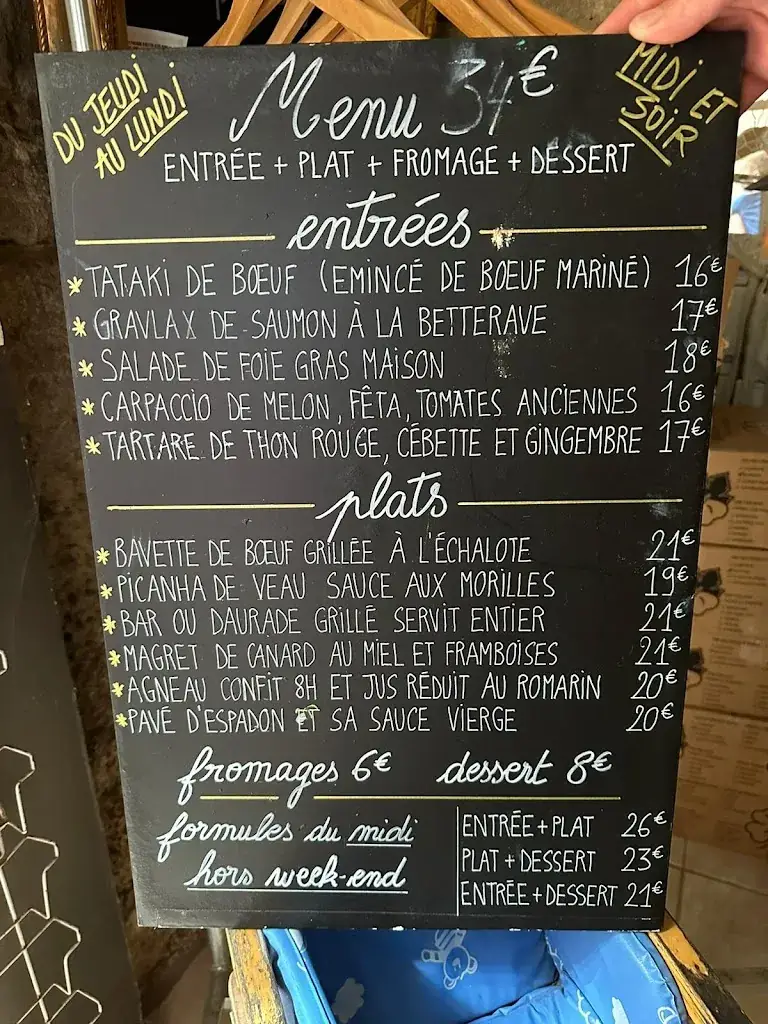 DU JEUDI
AU LUNDI
Menu 34€
MIDI ET
SOIR
ENTRÉE + PLAT + FROMAGE + DESSERT
entrées
* TATAKI DE BŒUF (EMINCÉ DE BOEUF MARINÉ) 16€
* GRAVLAX DE SAUMON À LA BETTERAVE 17€
* SALADE DE FOIE GRAS MAISON 18€
* CARPACCIO DE MELON, FÊTA, TOMATES ANCIENNES 16€
* TARTARE DE THON ROUGE, CÉBETTE ET GINGEMBRE 17€
plats
* BAVETTE DE BŒUF GRILLÉE À L'ÉCHALOTE 21€
* PICANHA DE VEAU SAUCE AUX MORILLES 19€
* BAR OU DAURADE GRILLÉ SERVIT ENTIER 21€
* MAGRET DE CANARD AU MIEL ET FRAMBOISES 21€
* AGNEAU CONFIT 8H ET JUS RÉDUIT AU ROMARIN 20€
* PAVÉ D'ESPADON ET SA SAUCE VIERGE 20€
fromages 6€ dessert 8€
formules du midi
hors week-end
ENTRÉE + PLAT 26€
PLAT + DESSERT 23€
ENTRÉE + DESSERT 21€